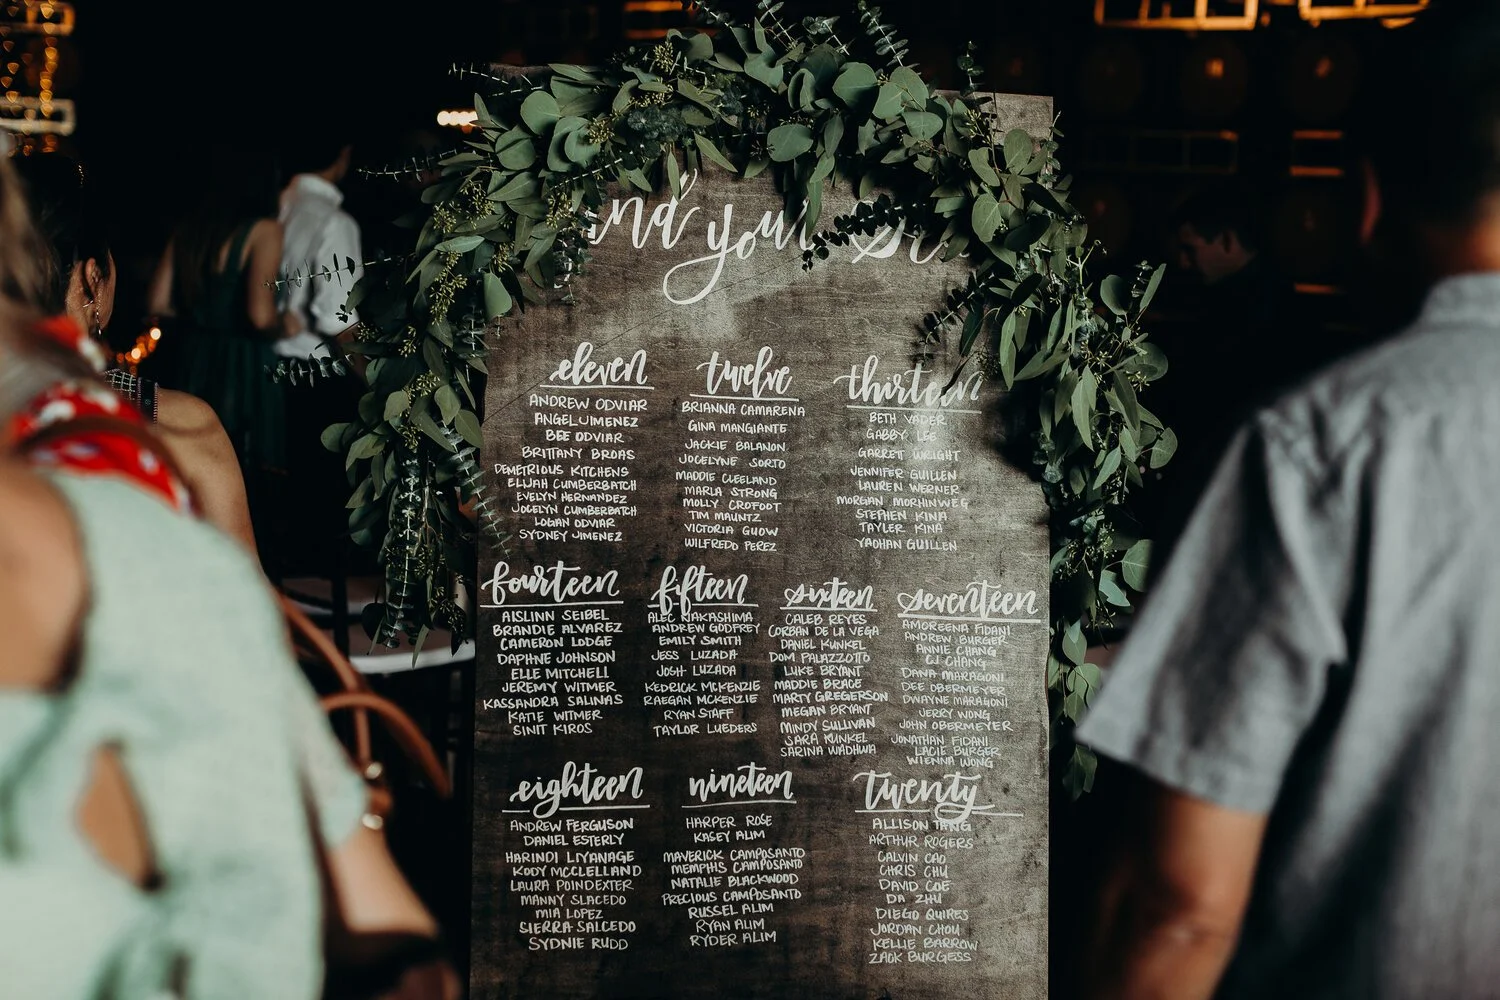 find your Se
eleven
ANDREW ODVIAR
ANGEL JIMENEZ
BEE ODVIAR
BRITTANY BROAS
DEMETRIOUS KITCHENS
ELIJAH CUMBERBATCH
EVELYN HERNANDEZ
JOCELYN CUMBERBATCH
LOGAN ODVIAR
SYDNEY JIMENEZ
twelve
BRIANNA CAMARENA
GINA MANGIANTE
JACKIE BALANON
JOCELYNE SORTO
MADDIE CLEELAND
MARLA STRONG
MOLLY CROFOOT
TIM MAUNTZ
VICTORIA GUOW
WILFREDO PEREZ
thirteen
BETH VADER
GABBY LEE
GARRET WRIGHT
JENNIFER GUILLEN
LAUREN WERNER
MORGAN MORHINWEG
STEPHEN KINA
TAYLER KINA
YAOHAN GUILLEN
fourteen
AISLINN SEIBEL
BRANDIE ALVAREZ
CAMERON LODGE
DAPHNE JOHNSON
ELLE MITCHELL
JEREMY WITMER
KASSANDRA SALINAS
KATIE WITMER
SINIT KIROS
fifteen
ALEC NAKASHIMA
ANDREW GODFREY
EMILY SMITH
JESS LUZADA
JOSH LUZADA
KEDRICK MCKENZIE
RAEGAN MCKENZIE
RYAN STAFF
TAYLOR LUEDERS
sixteen
CALEB REYES
CORBAN DE LA VEGA
DANIEL KUNKEL
DOM PALAZZOTTO
LUKE BRYANT
MADDIE BRACE
MARTY GREGERSON
MEGAN BRYANT
MINDY SULLIVAN
SARA KUNKEL
SARINA WADHWA
seventeen
AMOREENA FIDANI
ANDREW BURGER
ANNIE CHANG
CJ CHANG
DANA MARAGONI
DEE OBERMEYER
DWAYNE MARAGONI
JERRY WONG
JOHN OBERMEYER
JONATHAN FIDANI
LACIE BURGER
WIENNA WONG
eighteen
ANDREW FERGUSON
DANIEL ESTERLY
HARINDI LIYANAGE
KODY MCCLELLAND
LAURA POINDEXTER
MANNY SLACEDO
MIA LOPEZ
SIERRA SALCEDO
SYDNIE RUDD
nineteen
HARPER ROSE
KASEY ALIM
MAVERICK CAMPOSANTO
MEMPHIS CAMPOSANTO
NATALIE BLACKWOOD
PRECIOUS CAMPOSANTO
RUSSEL ALIM
RYAN ALIM
RYDER ALIM
twenty
ALLISON TANG
ARTHUR ROGERS
CALVIN CAO
CHRIS CHU
DAVID COE
DA ZHU
DIEGO QUIRES
JORDAN CHOU
KELLIE BARROW
ZACK BURGESS